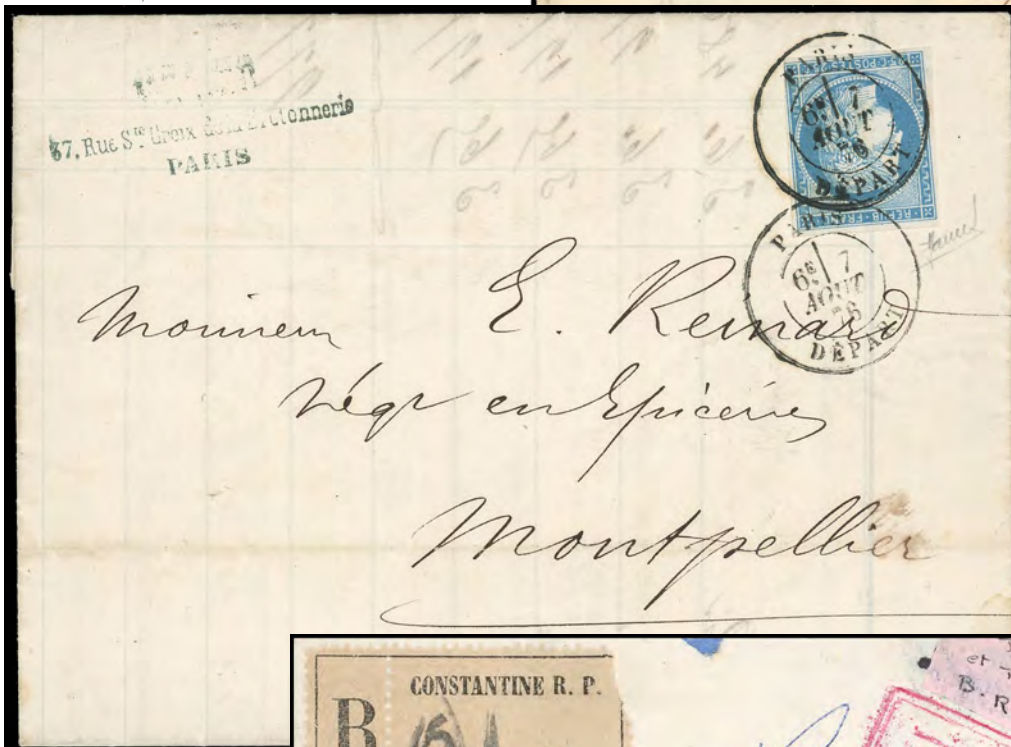 37, Rue Ste Croix de la Bretonnerie
PARIS
PARIS
6E 7
AOUT
76
DÉPART
25 C. POSTES 25 C.
REPUB. FRANC.
PARIS
6E 7
AOUT
76
DÉPART
Monsieur E. Reinard
Négt en Epiceries
Montpellier
CONSTANTINE R. P.
R
et
B. R